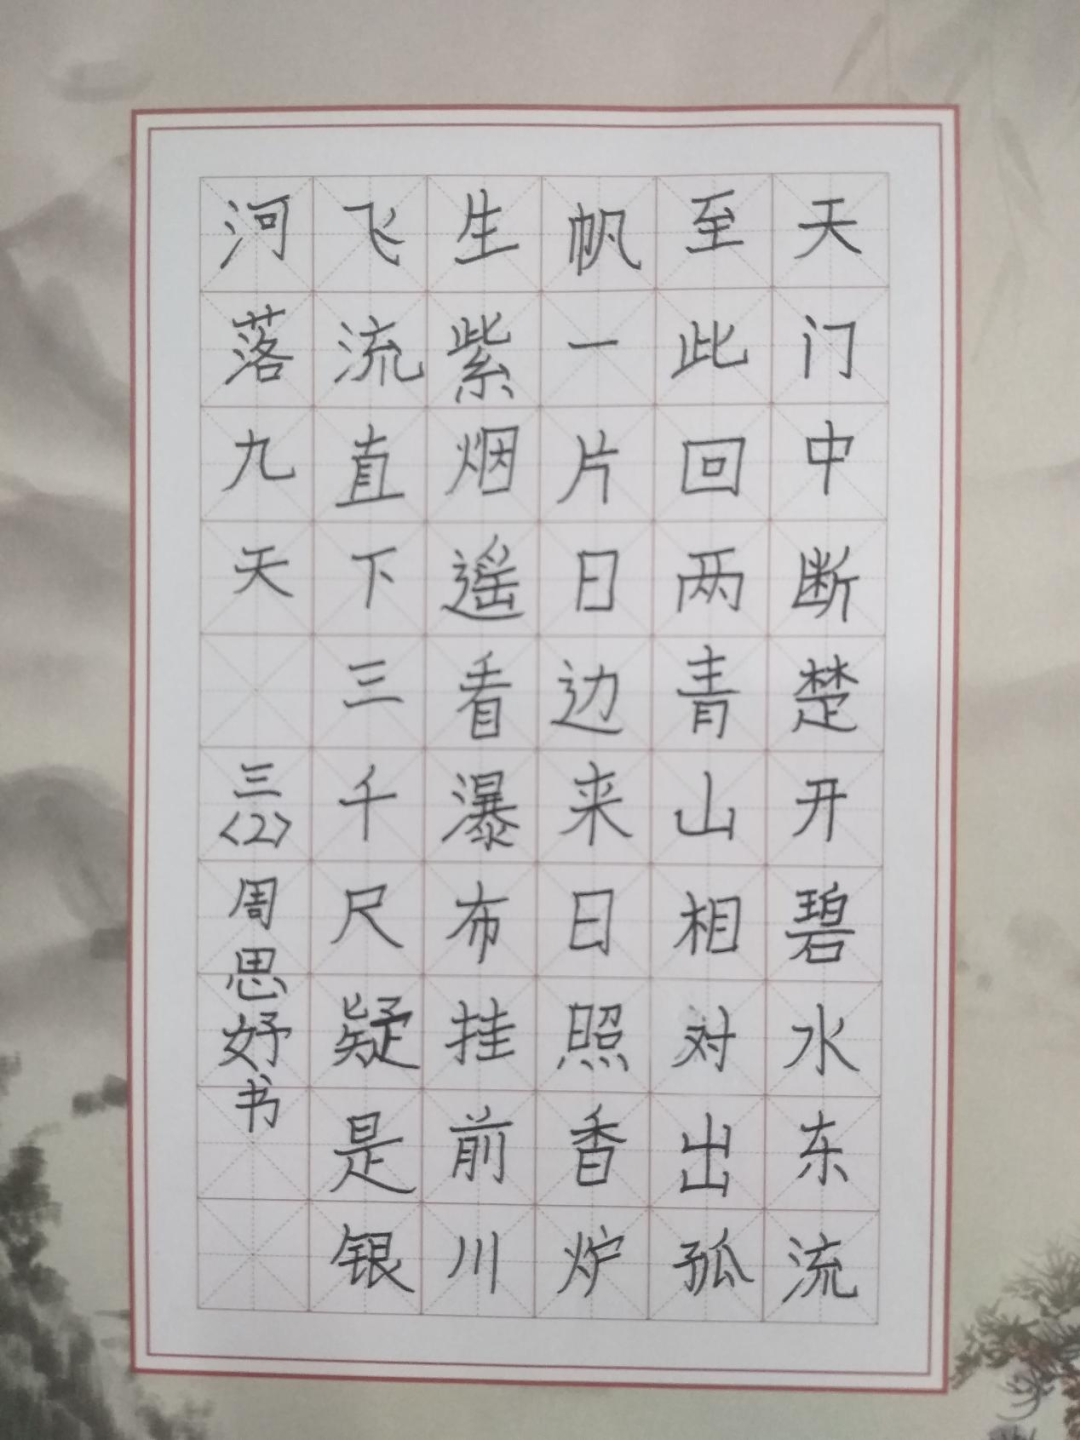 天门中断楚开碧水东流
至此回两青山相对出孤
帆一片日边来日照香炉
生紫烟遥看瀑布挂前川
飞流直下三千尺疑是银
河落九天 三〈2〉周思妤书